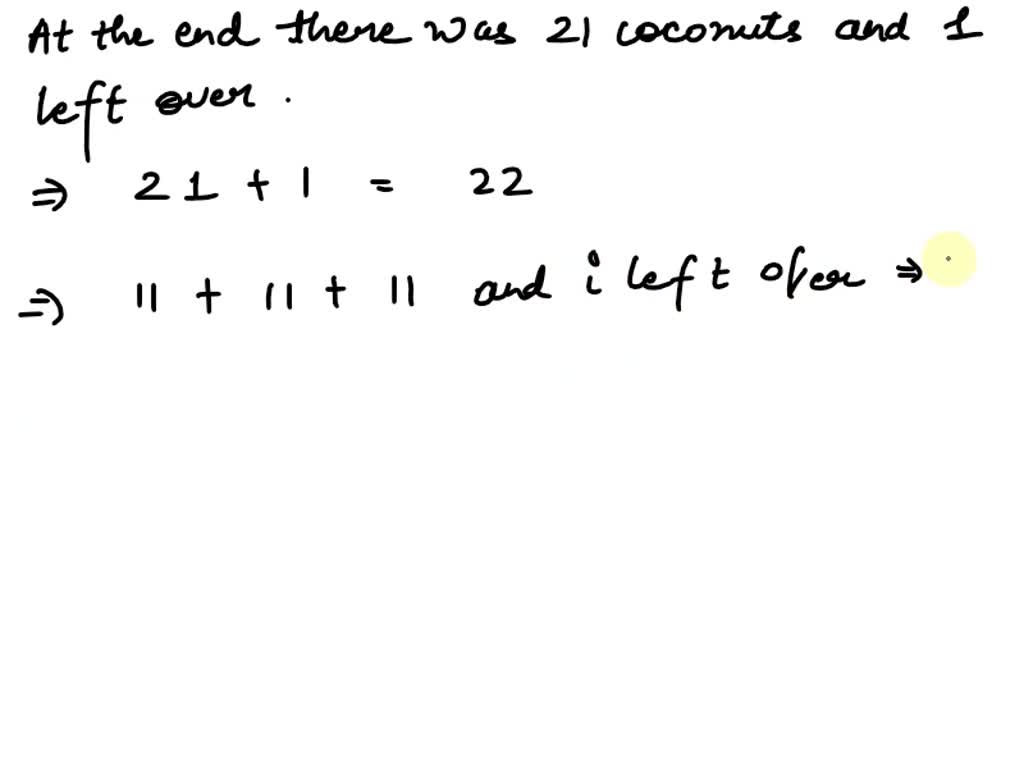 At the end there was 21 coconuts and 1
left over.
⇒ 21 + 1 = 22
⇒ 11 + 11 + 11 and i left over ⇒